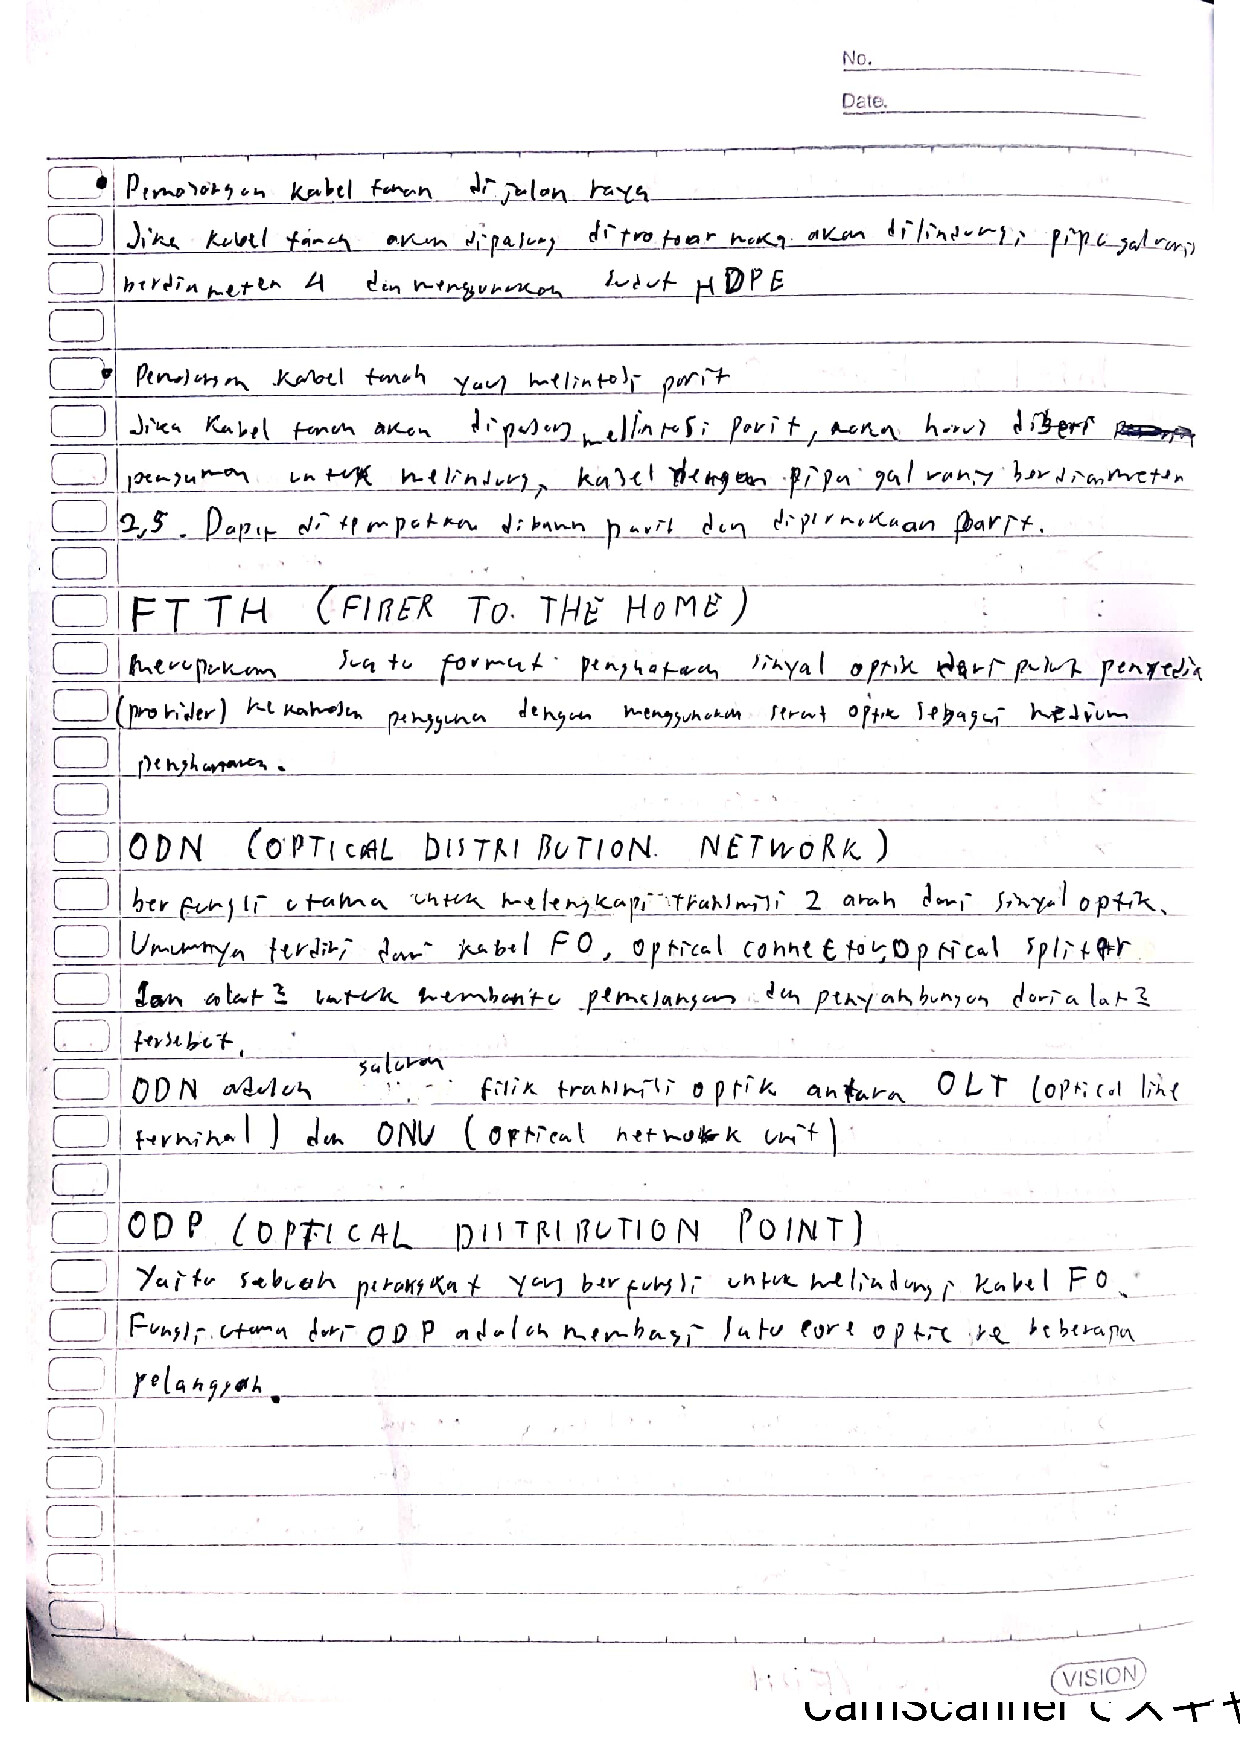 No.
Date.
Pemasangan kabel tanah di jalan raya
Jika kabel tanah akan dipasang ditrotoar maka akan dilindungi pipa galvanis
berdiameter 4 dan menggunakan HDPE
Pemasangan kabel tanah yang melintasi parit
Jika kabel tanah akan dipasang melintasi parit, maka harus diberi
untuk melindungi kabel dengan pipa galvanis berdiameter
2,5. Dapat ditempatkan dibawah parit dan dipermukaan parit.
FTTH (FIBER TO THE HOME)
Merupakan suatu format penghataran sinyal optik dari pusat penyedia
(provider) ke kawasan pengguna dengan menggunakan serat optik sebagai medium
penghantaran.
ODN (OPTICAL DISTRIBUTION NETWORK)
berfungsi utama untuk melengkapi transmisi 2 arah dari sinyal optik.
Umumnya terdiri dari kabel FO, optical connector, optical splitter
dan alat2 untuk membantu pemasangan dan penyambungan dari alat2
tersebut.
saluran
ODN adalah fisik transmisi optik antara OLT (optical line
terminal) dan ONU (optical network unit)
ODP (OPTICAL DISTRIBUTION POINT)
Yaitu sebuah perangkat yang berfungsi untuk melindungi kabel FO.
Fungsi utama dari ODP adalah membagi satu core optic ke beberapa
pelanggan.
VISION
CamScanner でスキャ